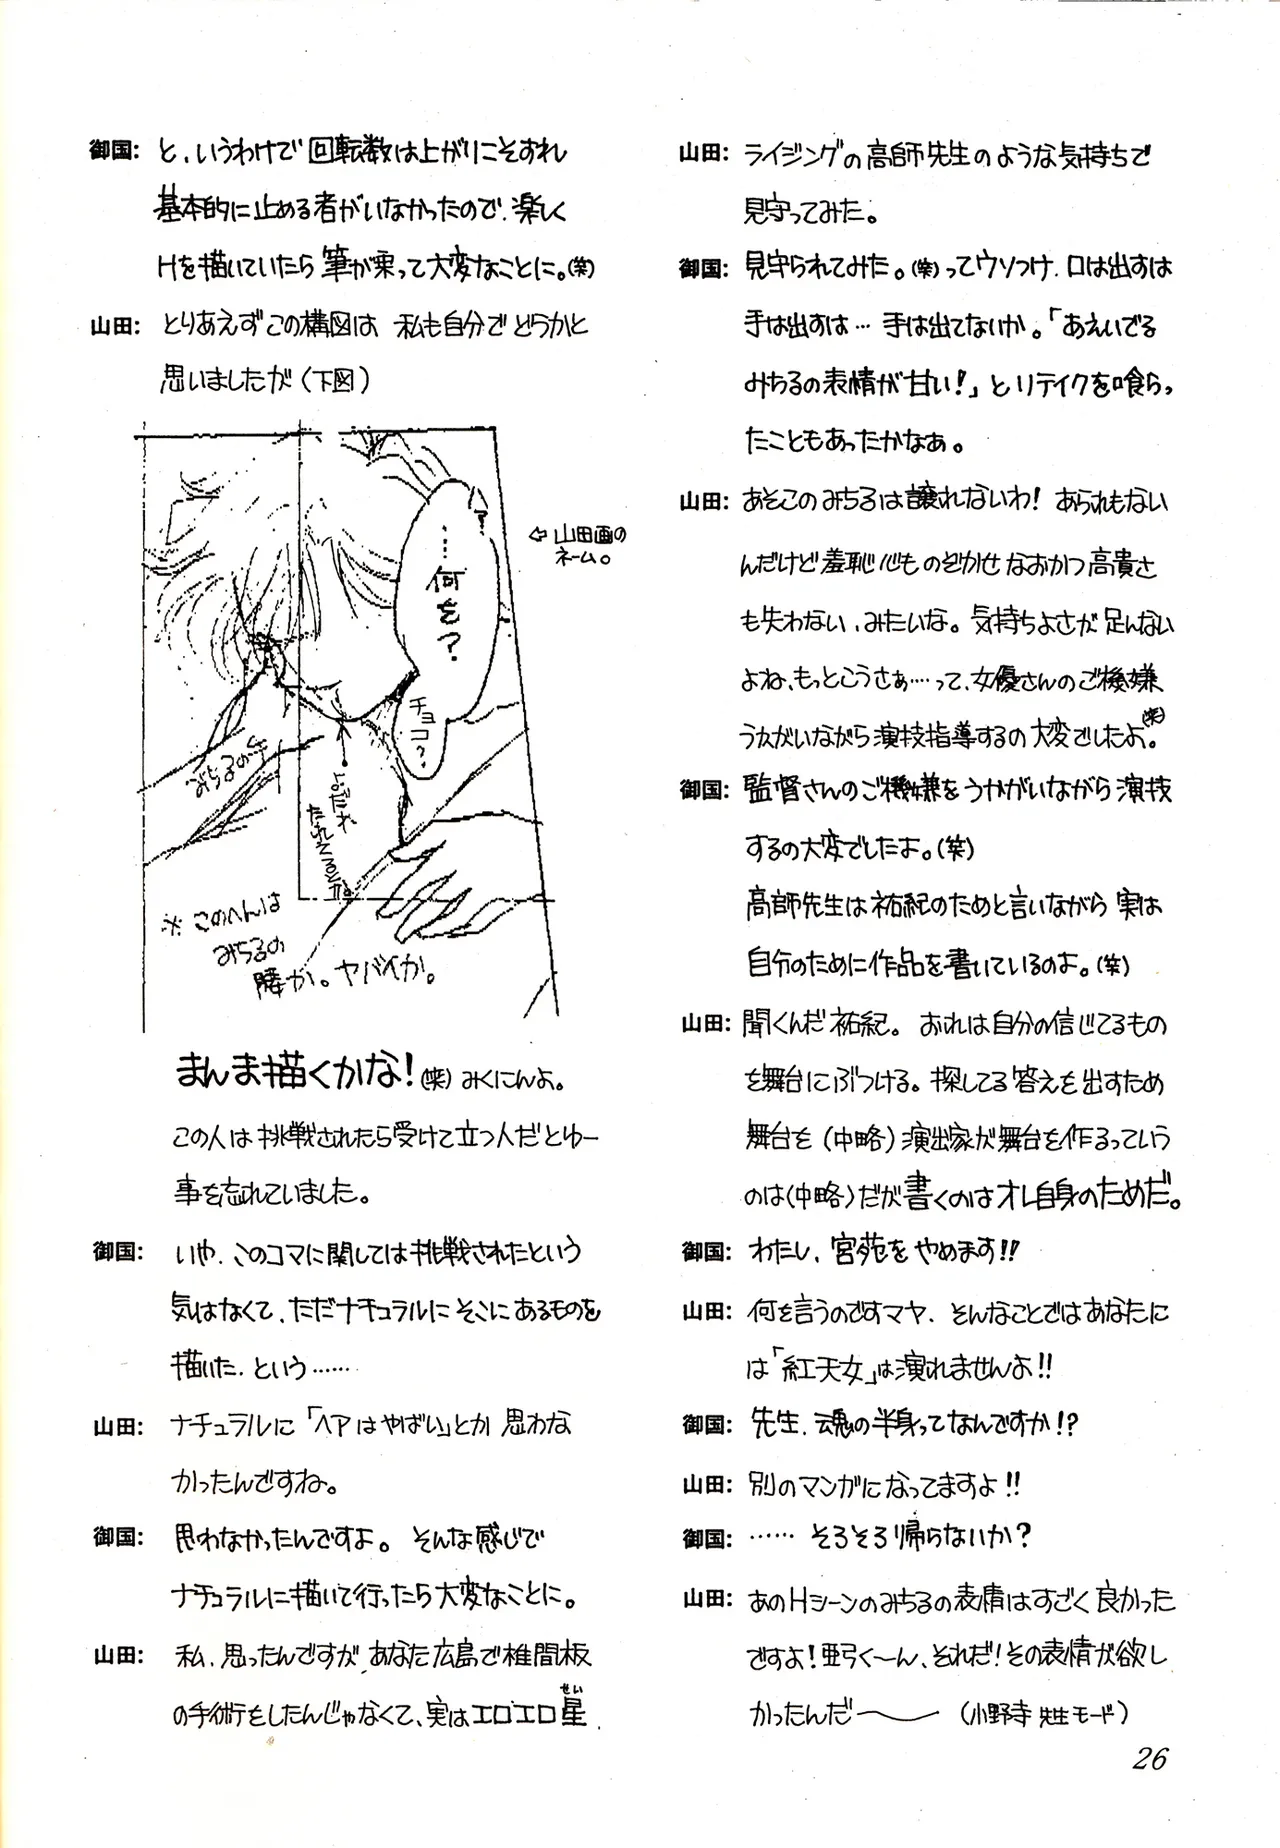 御国: と、いうわけで回転数は上がりこそすれ
基本的に止める者がいなかったので、楽しく
Hを描いていたら筆が乗って大変なことに。(笑)
山田: とりあえずこの構図は 私も自分でどうかと
思いましたが(下図)
?
…何を?
チョコ?
⇦山田画の
ネーム。
みちるの⇨
よだれ
たれてるそ
※このへんは
みちるの
膝か。ヤバイか。
まんま描くかな!(笑)みくにんよ。
この人は挑戦されたら受けて立つ人だとゆー
事を忘れていました。
御国: いや、このコマに関しては挑戦されたという
気はなくて、ただナチュラルにそこにあるものを
描いた、という……
山田: ナチュラルに「ヘアはやばい」とか 思わな
かったんですね。
御国: 思わなかったんですよ。そんな感じで
ナチュラルに描いて行ったら大変なことに。
山田: 私、思ったんですが、あなた広島で椎間板
の手術をしたんじゃなくて、実はエロエロ星せい
山田: ライジングの高師先生のような気持ちで
見守ってみた。
御国: 見守られてみた。(笑)ってウソつけ、口は出すは
手は出すは… 手は出てないか。「あえいでる
みちるの表情が甘い!」とリテイクを喰らっ
たこともあったかなぁ。
山田: あそこのみちるは譲れないわ! あられもない
んだけど羞恥心ものぞかせなおかつ高貴さ
も失わない、みたいな。気持ちよさが足んない
よね、もっとこうさぁ…って、女優さんのご機嫌
うかがいながら演技指導するの大変でしたよ。(笑)
御国: 監督さんのご機嫌をうかがいながら演技
するの大変でしたよ。(笑)
高師先生は祐紀のためと言いながら 実は
自分のために作品を書いているのよ。(笑)
山田: 聞くんだ祐紀。おれは自分の信じてるもの
を舞台にぶつける。探してる答えを出すため
舞台を(中略)演出家が舞台を作るっていう
のは(中略)だが書くのはオレ自身のためだ。
御国: わたし、宮苑をやめます!!
山田: 何を言うのですマヤ、そんなことではあなたに
は「紅天女」は演れませんよ!!
御国: 先生、魂の半身ってなんですか!?
山田: 別のマンガになってますよ!!
御国: …… そろそろ帰らないか?
山田: あのHシーンのみちるの表情はすごく良かった
ですよ!亜弓く〜ん、それだ!その表情が欲し
かったんだ〜 (小野寺先生モード)
26